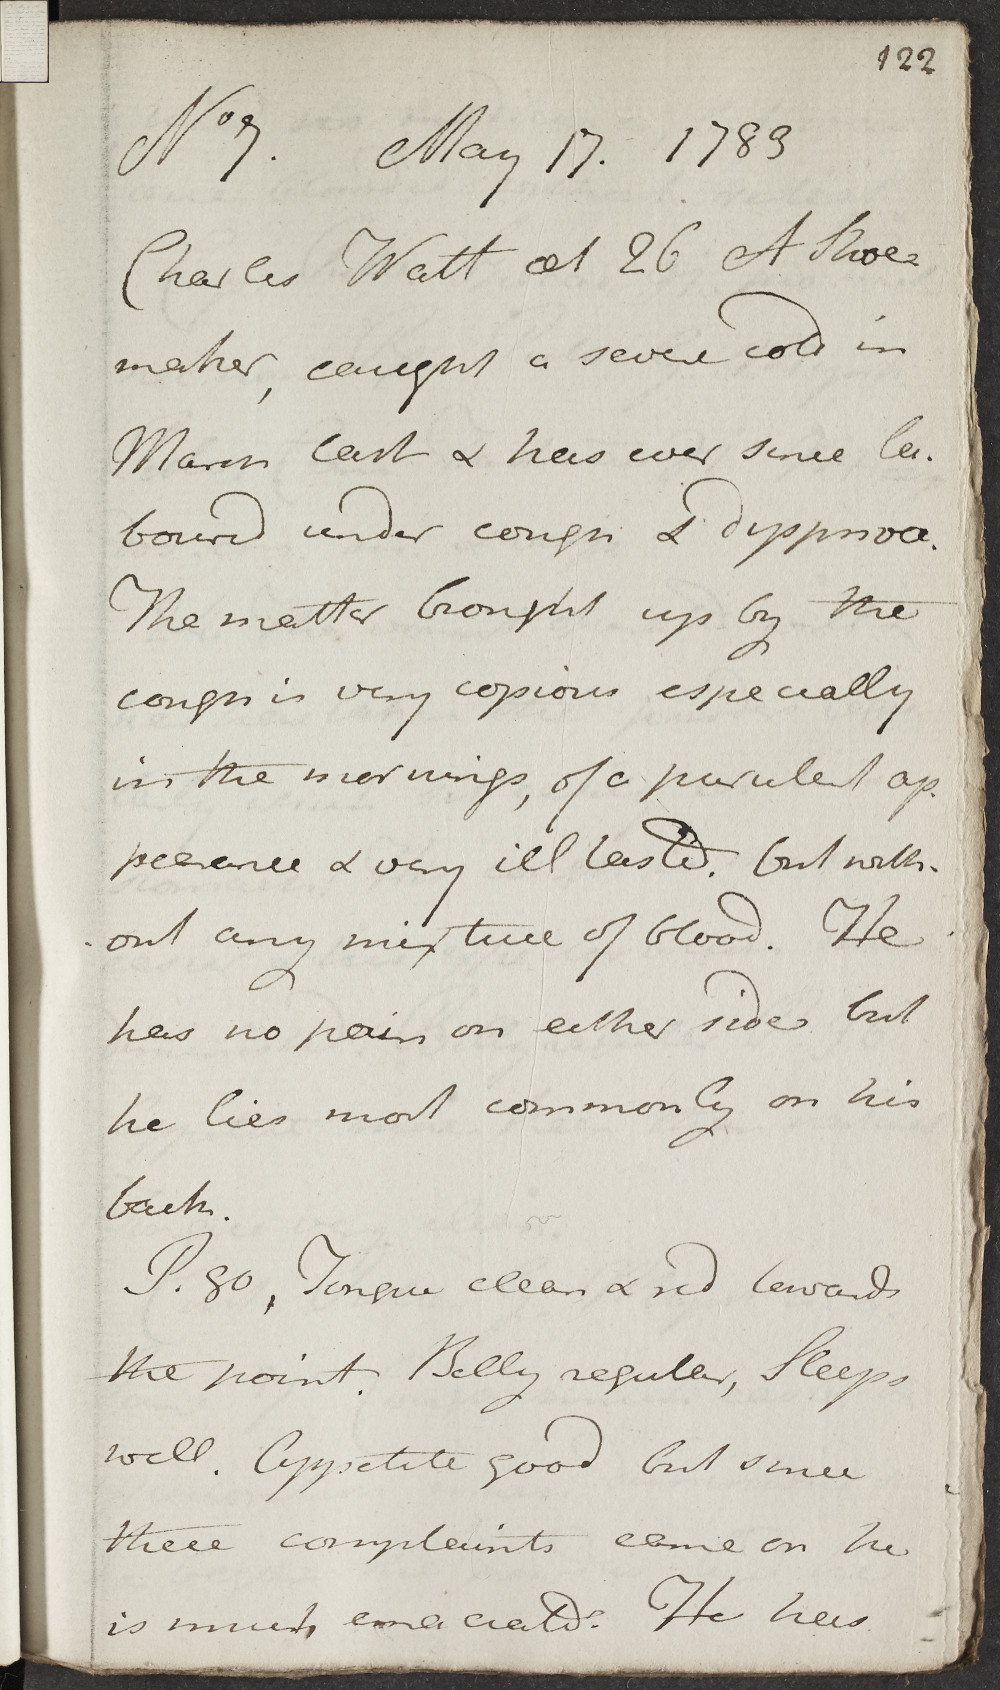 122
No 7. May 17. 1783
Charles Watt æt 26 A Shoe=
maker, caught a severe cold in
March last & has ever since la-
boured under cough & dyspnoea.
The matter brought up by the
cough is very copious especially
in the mornings, of a purulent ap-
pearance & very ill tasted. but with-
out any mixture of blood. He
has no pain on either side but
he lies most commonly on his
back.
P. 80, Tongue clean & red towards
the point. Belly regular, Sleeps
well. Appetite good but since
these complaints came on he
is much emaciated. He has